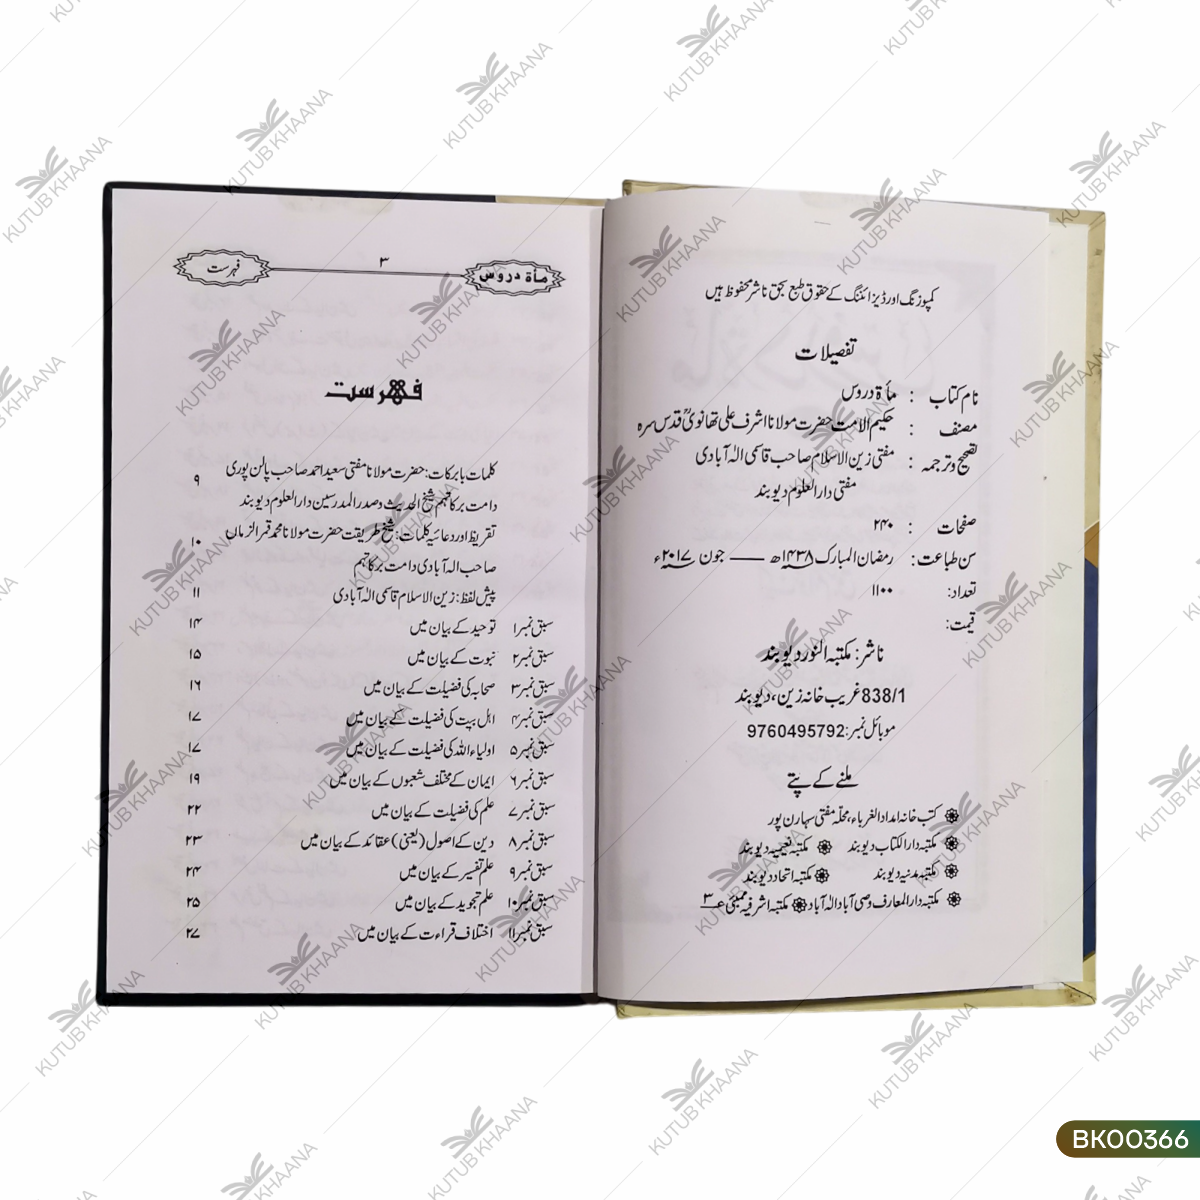 کمپوزنگ اور ڈیزائننگ کے حقوق طبع بحق ناشر محفوظ ہیں
تفصیلات
نام کتاب : مأۃ دروس
مصنف : حکیم الامت حضرت مولانا اشرف علی تھانویؒ قدس سرہ
تصحیح و ترجمہ : مفتی زین الاسلام صاحب قاسمی الٰہ آبادی
مفتی دار العلوم دیوبند
صفحات : ۲۴۰
سن طباعت : رمضان المبارک ۱۴۳۸ھ —— جون ۲۰۱۷ء
تعداد: ۱۱۰۰
قیمت:
ناشر: مکتبہ النور دیوبند
838/1 غریب خانہ زین، دیوبند
موبائل نمبر: 9760495792
ملنے کے پتے
کتب خانہ امداد الغرباء، محلّہ مفتی سہارن پور
مکتبہ دار الکتاب دیوبند مکتبہ نعیمیہ دیوبند
مکتبہ مدنیہ دیوبند مکتبہ اتحاد دیوبند
مکتبہ دار المعارف وصی آباد الٰہ آباد مکتبہ اشرفیہ ممبئی ۳
مأۃ دروس ۳ فہرست
فہرست
کلمات بابرکات: حضرت مولانا مفتی سعید احمد صاحب پالن پوری
دامت برکاتہم شیخ الحدیث و صدر المدرسین دار العلوم دیوبند ۹
تقریظ اور دعائیہ کلمات: شیخ طریقت حضرت مولانا محمد قمر الزماں
صاحب الہ آبادی دامت برکاتہم ۱۰
پیش لفظ: زین الاسلام قاسمی الٰہ آبادی ۱۱
سبق نمبر۱ توحید کے بیان میں ۱۴
سبق نمبر۲ نبوت کے بیان میں ۱۵
سبق نمبر۳ صحابہ کی فضیلت کے بیان میں ۱۶
سبق نمبر۴ اہل بیت کی فضیلت کے بیان میں ۱۷
سبق نمبر۵ اولیاء اللہ کی فضیلت کے بیان میں ۱۷
سبق نمبر۶ ایمان کے مختلف شعبوں کے بیان میں ۱۹
سبق نمبر۷ علم کی فضیلت کے بیان میں ۲۲
سبق نمبر۸ دین کے اصول (یعنی) عقائد کے بیان میں ۲۳
سبق نمبر۹ علم تفسیر کے بیان میں ۲۴
سبق نمبر۱۰ علم تجوید کے بیان میں ۲۵
سبق نمبر۱۱ اختلاف قراءت کے بیان میں ۲۷
KUTUB KHAANA
BK00366